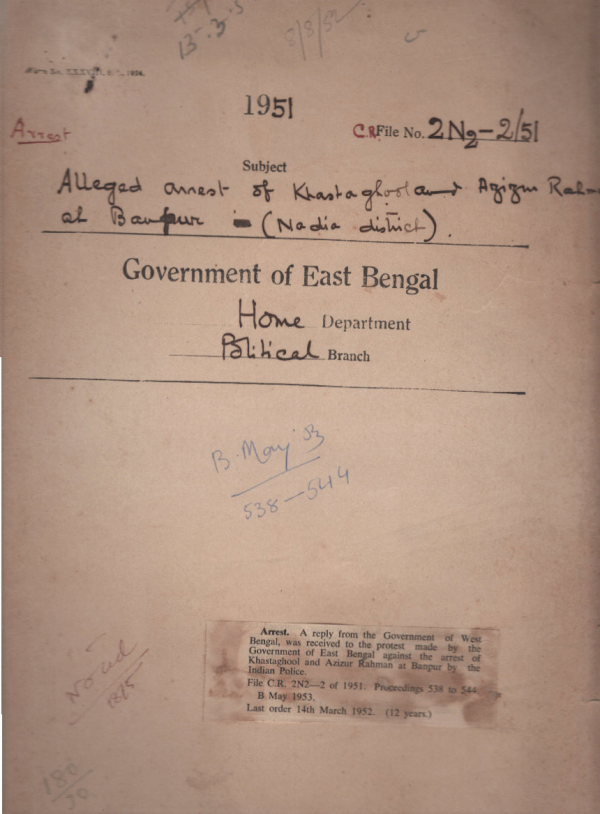 13.3.5
8/8/52
1951
Arrest
C.R. File No. 2N2-2/51
Subject
Alleged arrest of Khastaghool and Azizur Rahm
at Banpur in (Nadia district).
Government of East Bengal
Home Department
Political Branch
B. May '53
538-544
Arrest. A reply from the Government of West
Bengal, was received to the protest made by the
Government of East Bengal against the arrest of
Khastaghool and Azizur Rahman at Banpur by the
Indian Police.
File C.R. 2N2—2 of 1951. Proceedings 538 to 544
B May 1953.
Last order 14th March 1952. (12 years.)
Noted
180